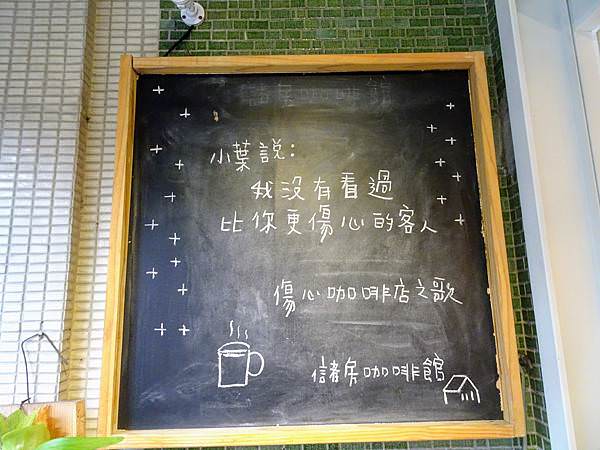 儲房咖啡館
小葉說:
我沒有看過
比你更傷心的客人
傷心咖啡店之歌
儲房咖啡館